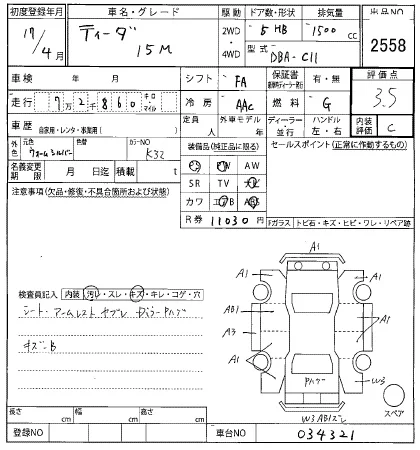 初度登録年月 車名・グレード 駆動 ドア数・形状 排気量 出品NO
17/4月 ティーダ 15M 2WD・4WD 5 HB 1500cc 2558
型式 DBA-C11
車検 年 月 シフト FA 保証書 有・無 評価点
走行 7万2千860 キロ・マイル 冷房 AAC 燃料 G 3.5
車歴 自家用・レンタ・事業用( ) 定員 人 外車モデル 年 ディーラー・並行 ハンドル 左・右 内装評価 C
外色 元色 ウォームシルバー 色替 カラーNO K32
装備品(純正品に限る) セールスポイント(正常に作動するもの)
名義変更期限 月 日迄 積載 t
PS PW AW
SR TV ナビ
カワ エアB ABS
R券 11030円
注意事項(欠品・修復・不具合箇所および状態)
Fガラス トビ石・キズ・ヒビ・ワレ・リペア跡
A1
A1 A1
AB1
A3 A1
A1
Pハゲ W3
W3AB1ズレ
スペア
検査員記入 内装 汚レ・スレ・キズ・キレ・コゲ・穴
シート、アームレスト
キズンB
長さ cm 幅 cm 高さ cm
登録NO 車台NO 034321